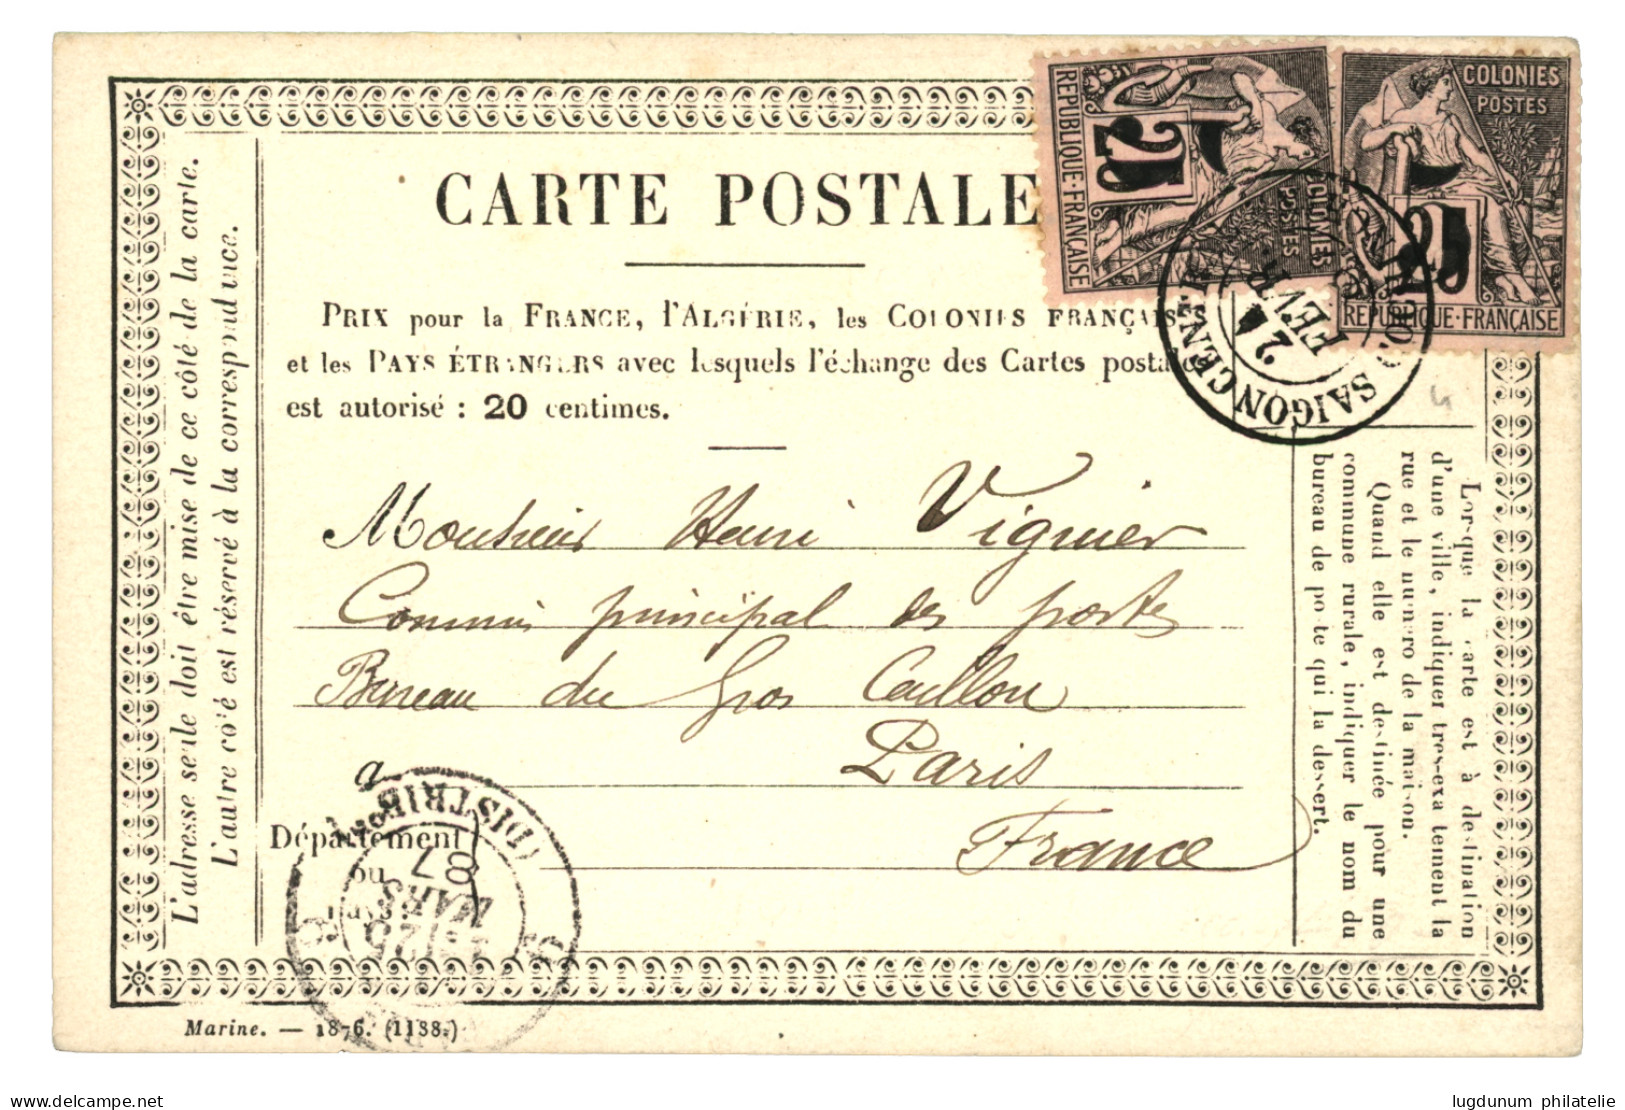 CARTE POSTALE
PRIX pour la FRANCE, l'ALGÉRIE, les COLONIES FRANÇAISES
et les PAYS ÉTRANGERS avec lesquels l'échange des Cartes postales
est autorisé : 20 centimes.
L'adresse seule doit être mise de ce côté de la carte.
L'autre côté est réservé à la correspondance.
RÉPUBLIQUE·FRANÇAISE
COLONIES
POSTES
25
5
COLONIES
POSTES
25
5
RÉPUBLIQUE·FRANÇAISE
SAIGON CENTRAL
24
FEVR
Monsieur Henri Vignier
Commis principal des postes
Bureau du Gros Caillou
à Paris
France
Département
ou
Pays:
DISTRIB
87
MARS
25
Lorsque la carte est à destination
d'une ville, indiquer tres-exactement la
rue et le numéro de la maison.
Quand elle est destinée pour une
commune rurale, indiquer le nom du
bureau de poste qui la dessert.
Marine. — 1876. (1138.)
delcampe.net
lugdunum philatelie